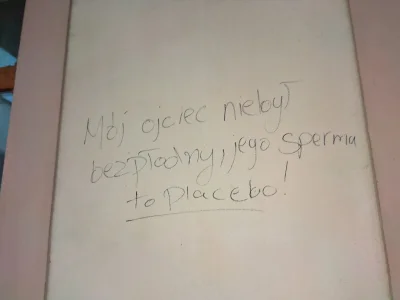 Mój ojciec niebył
bezpłodny, jego sperma
to placebo!